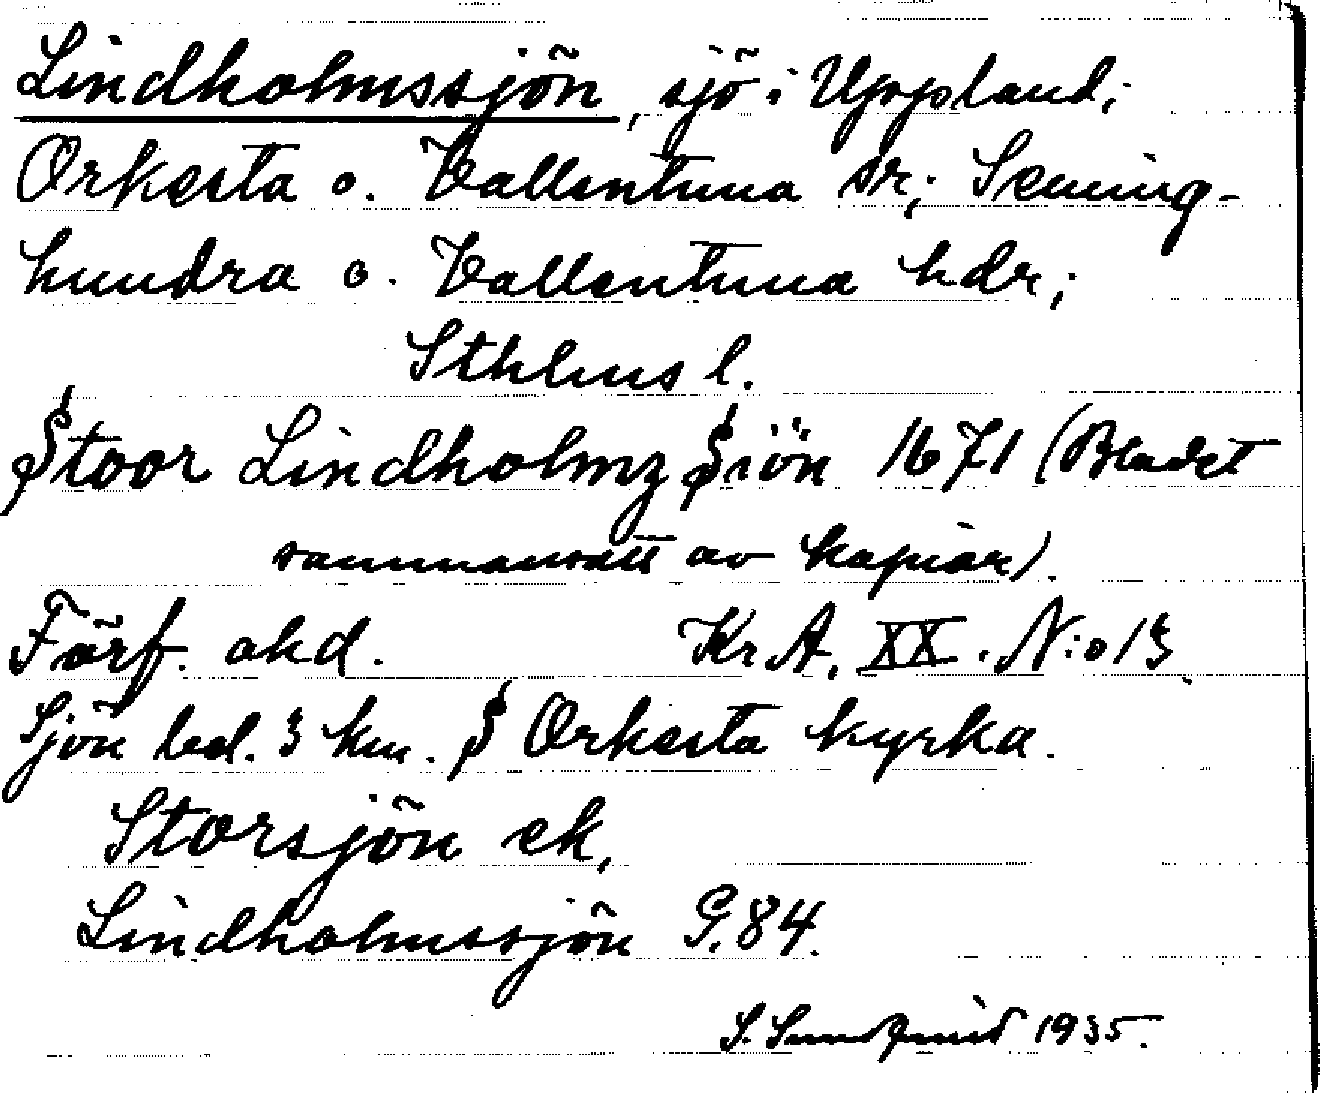 Lindholmssjön, sjö i Uppland;
Orkesta o. Vallentuna sr; Seming-
hundra o. Vallentuna hdr;
Sthlms l.
Stoor Lindholmz Siön 1671 (Bladet
sammansatt av kopior).
Förf. okd. Kr A. XX. N:o 13
Sjön bel. 3 km. S Orkesta kyrka.
Storsjön ek,
Lindholmssjön G. 84.
S. Sundqvist 1935.